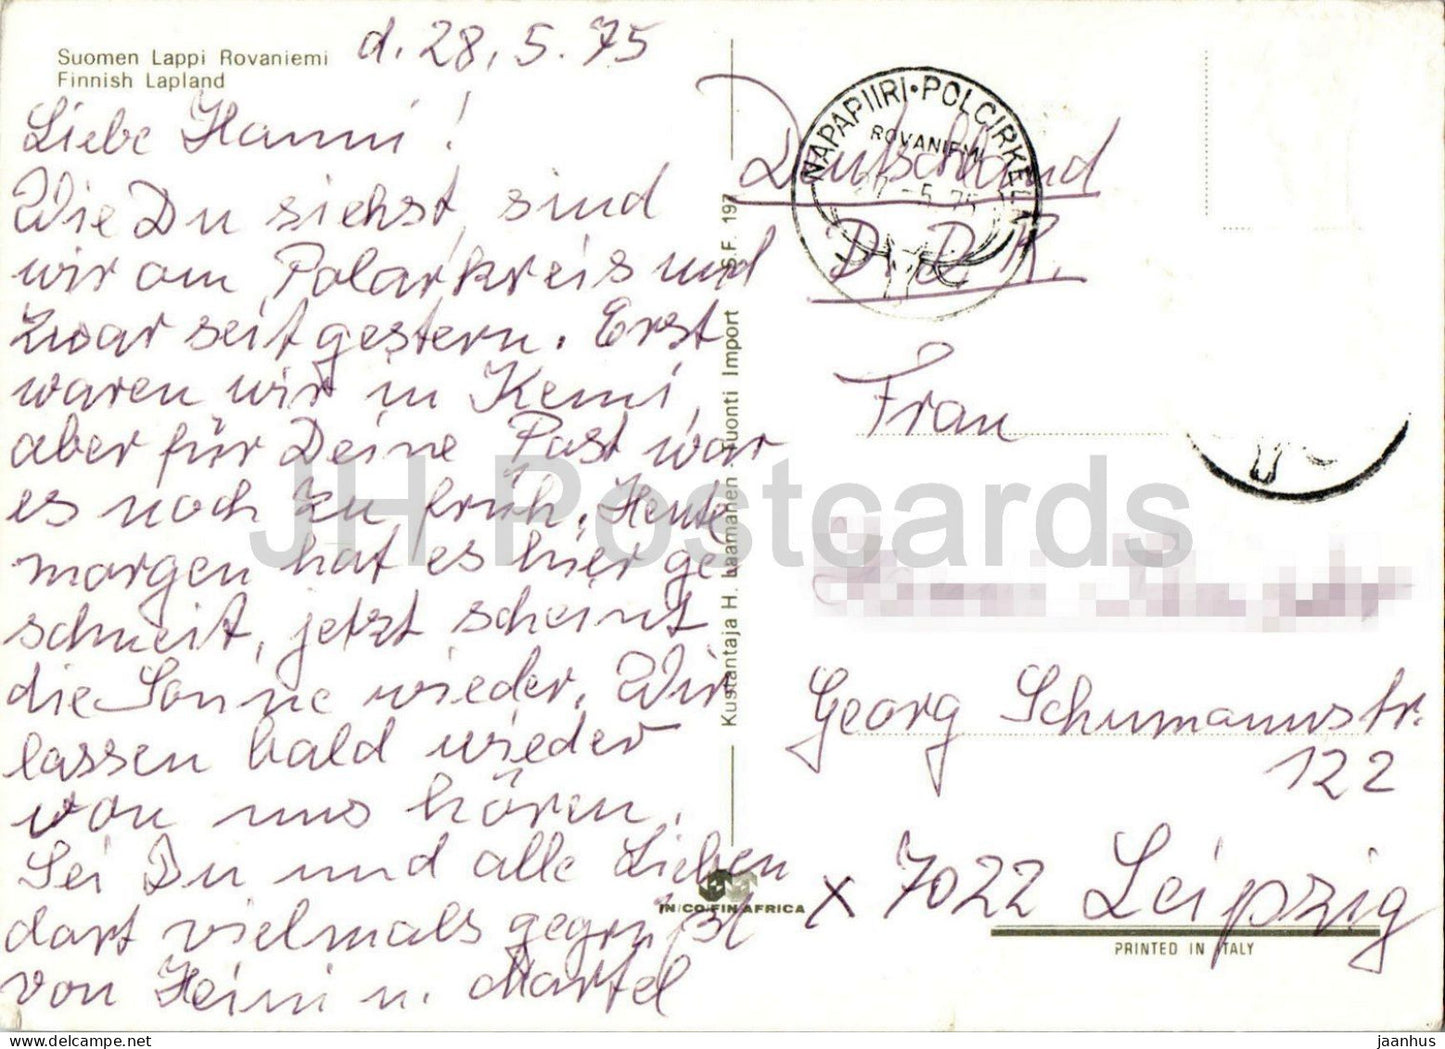 Suomen Lappi Rovaniemi
Finnish Lapland
d. 28. 5. 75
Liebe Hanni!
Wie Du siehst, sind
wir am Polarkreis und
zwar seit gestern. Erst
waren wir in Kemi,
aber für Deine Post war
es noch zu früh. Heute
morgen hat es hier ge
schneit, jetzt scheint
die Sonne wieder. Wir
lassen bald wieder
von uns hören.
Sei Du und alle Lieben
dort vielmals gegrüßt
von Heini u. Martel
Kustantaja H. Laamanen Tuonti Import S.F. 197
IN/CO/FIN AFRICA
NAPAPIIRI•POLCIRKEL
ROVANIEMI
5. 75
Deutschland
D. D. R.
Frau
Georg Schumannstr.
122
x 7022 Leipzig
PRINTED IN ITALY
JH Postcards
www.delcampe.net
jaanhus